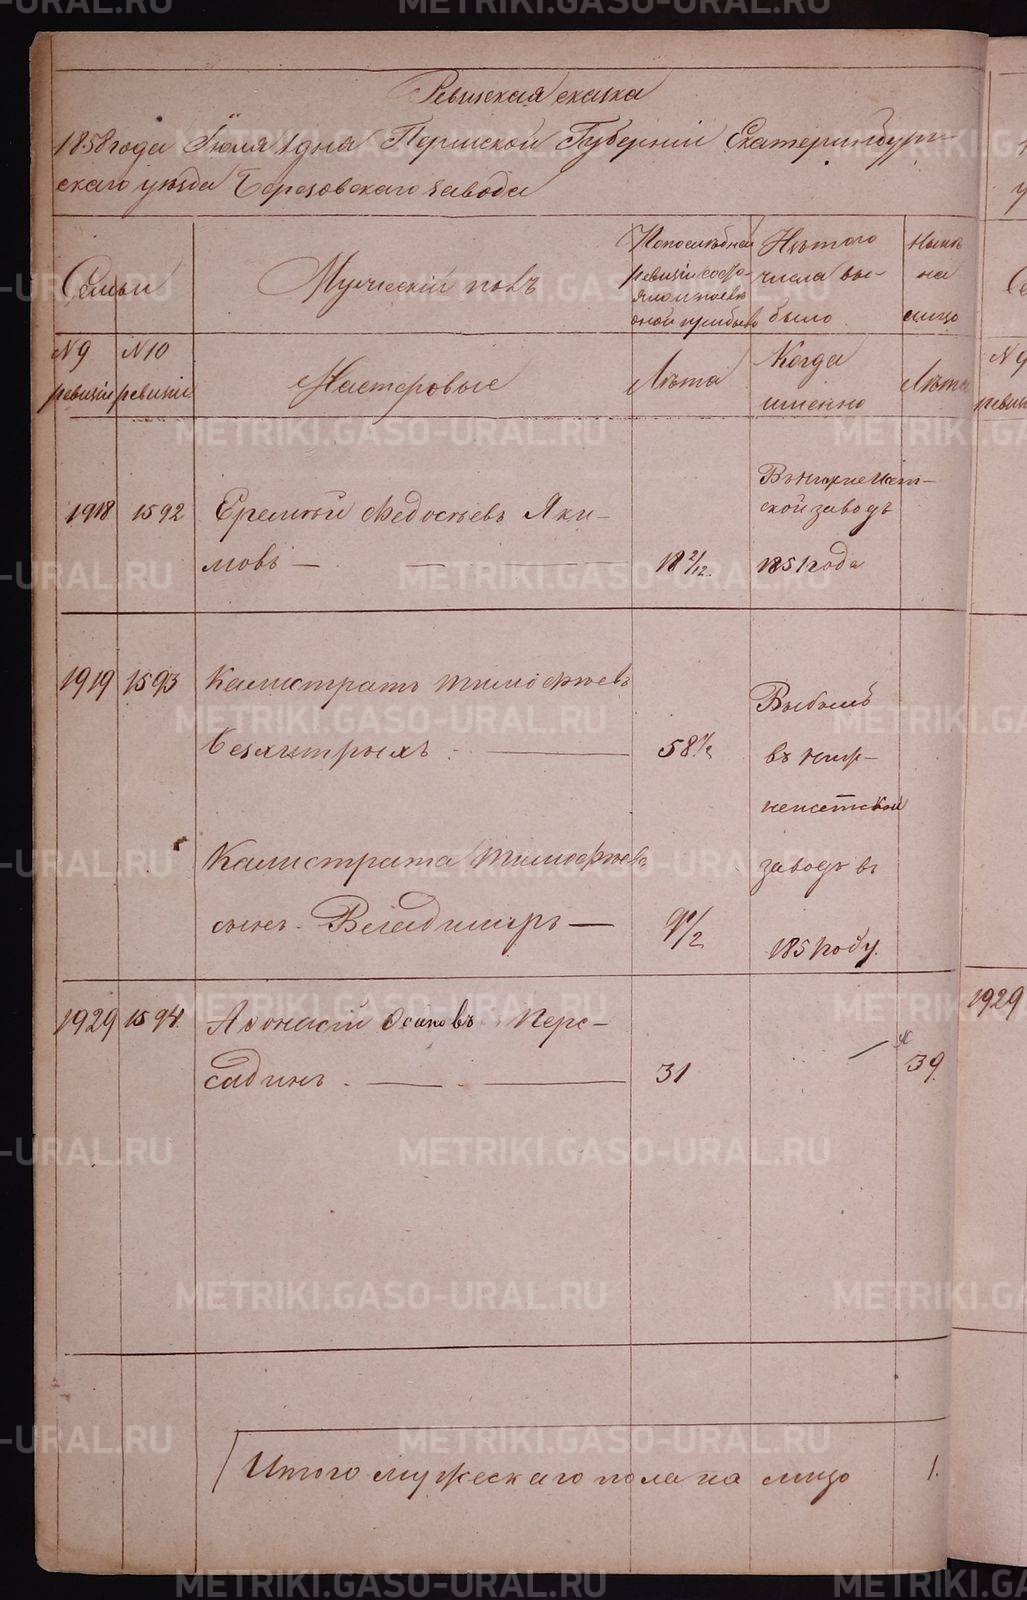 Ревизская сказка
1858 года Іюля 1 дня Пермской Губерніи Екатеринбург-
скаго уезда Березовскаго завода
Семьи
Мужескій полъ
По последней
ревизіи состо-
яло и после
оной прибыло
Изъ того
числа вы-
было
Ныне
на
лицо
N 9
ревизіи
N 10
ревизіи
Мастеровые
Лета
Когда
именно
Лета
1918 1592 Еремей Федосеевъ Яки-
мовъ — 18 2/12.
В Нижне Исет-
ской заводъ
1851 года
1919 1593 Калистратъ Тимофеевъ
Безхитрыхъ — 58 1/2
Выбылъ
въ Ниж-
неисетской
заводъ въ
1851 году.
Калистрата Тимофеева
сынъ Владимиръ — 9 1/2
1929 1594 Афонасій Осиповъ Пере-
садинъ — 31 — 39.
Итого мужескаго пола на лицо 1.
1929
METRIKI.GASO-URAL.RU